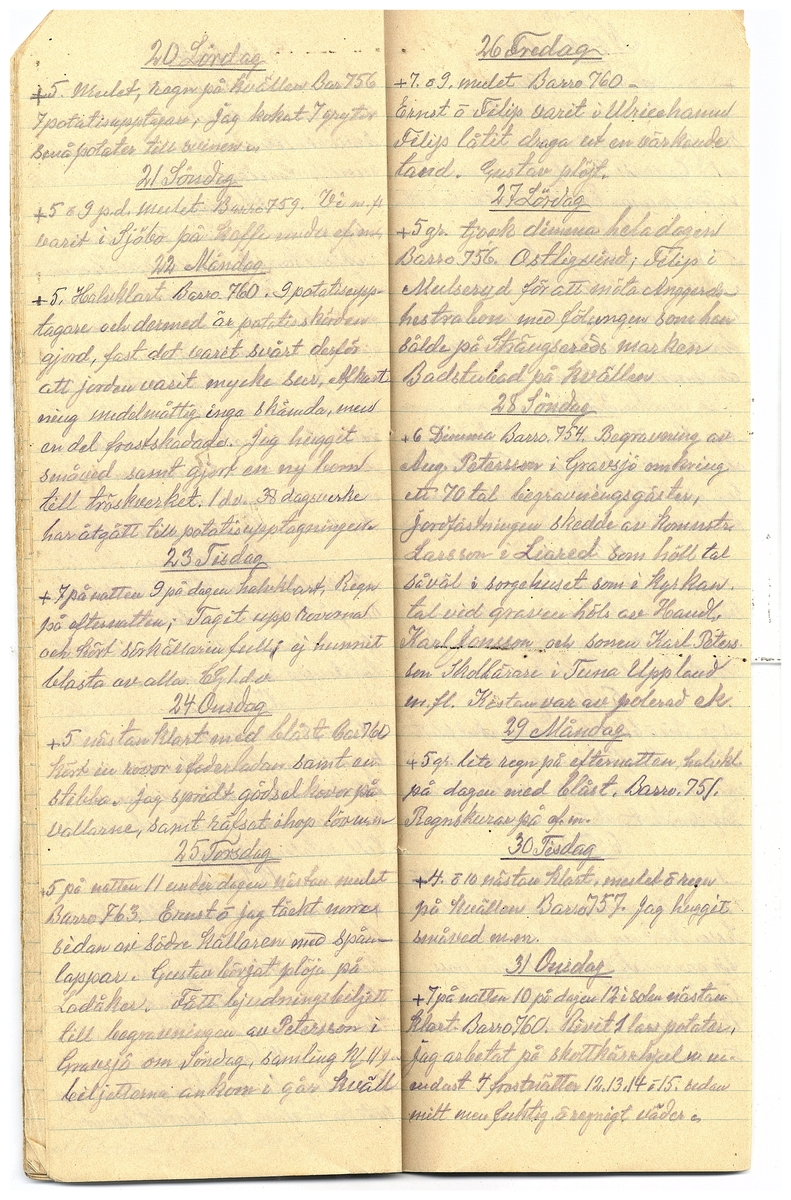 20 Lördag
+5. Mulet, regn på kvällen Bar 756
7 potatisupptagare, Jag kokat 7 grytor
småpotater till svinen
21 Söndag
+5 o 9 p.d. mulet Barro 759. Vi m.fl
varit i Sjöbo på Kaffe under ef.m.
22 Måndag
+5. Halvklart Barro 760. 9 potatisupp-
tagare och dermed är potatisskörden
gjord, fast det varit svårt derför
att jorden varit mycke sur, Afkast
ning medelmåttig inga skämda, men
en del frostskadade. Jag huggit
småved samt gjort en ny bom
till tröskverket. 1 dv. 38 dagsverke
har åtgått till potatisupptagningen.
23 Tisdag
+7 på natten 9 på dagen halvklart, Regn
på efternatten; Tagit upp Rovorna
och kört källaren full; ej hunnit
blasta av alla. 1 dv
24 Onsdag
+5 nästan klart med blåst Bar 760
kört in rovor i foderladan samt en
stibba. Jag spridt gödselkovor på
vallarne, samt räfsat ihop löv m.m
25 Torsdag
5 på natten 11 under dagen nästan mulet
Barro 763. Ernst o jag täckt norra
sidan av södre Källaren med spån-
lappar. Gustav börjat plöja på
Ladåker. Fått bjudningsbiljett
till begravningen av Petersson i
Gravsjö om Söndag, samling kl 11
biljetterna ankom i går kväll
26 Fredag
+7. o 9. mulet Barro 760 -
Ernst o Filip varit i Ulricehamn
Filip låtit draga ut en värkande
tand. Gustav plöjt.
27 Lördag
+5 gr. tjock dimma hela dagen
Barro 756. Ostlig vind; Filip i
Mulseryd för att möta Anggerds-
hestrabon med fölungen som han
sålde på Strängsereds marken
Badstubad på kvällen
28 Söndag
+6 Dimma Barro. 754. Begravning av
Aug. Petersson i Gravsjö omkring
ett 70 tal begravningsgäster,
Jordfästningen skedde av komministr.
Larsson i Liared som höll tal
såväl i sorgehuset som i Kyrkan.
tal vid graven höls av Handl.
Karl Jonsson och sonen Karl Peters
son Skollärare i Tuna Uppland
m.fl. Kistan var av polerad ek.
29 Måndag
+5 gr. lite regn på efternatten, halvkl.
på dagen med blåst. Barro. 751.
Regnskurar på ef.m.
30 Tisdag
+4. o 10 nästan klart. mulet o regn
på kvällen Barro 757. Jag huggit
småved m.m.
31 Onsdag
+7 på natten 10 på dagen 12 i solen nästan
klart. Barro 760. 1 lass potater,
Jag arbetat på skottkärrhjul m m.
endast 4 frostnätter 12.13.14 o 15. sedan
mitt men fuktig o regnigt väder